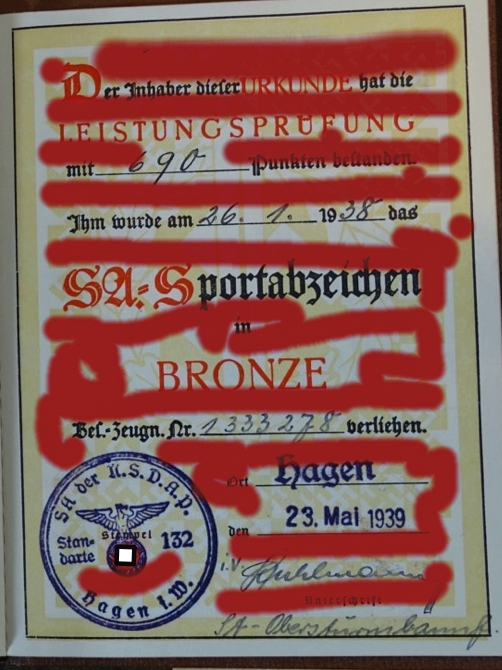 Der Inhaber dieser URKUNDE hat die
LEISTUNGSPRÜFUNG
mit 690 Punkten bestanden.
Ihm wurde am 26. 1. 1938 das
SA-Sportabzeichen
in
BRONZE
Bes.-Zeugn. Nr. 1333278 verliehen.
Ort Hagen
den 23. Mai 1939
i.V.
Unterschrift
SA-Obersturmbannf.
SA der N.S.D.A.P.
Stempel
Standarte 132
Hagen i. W.